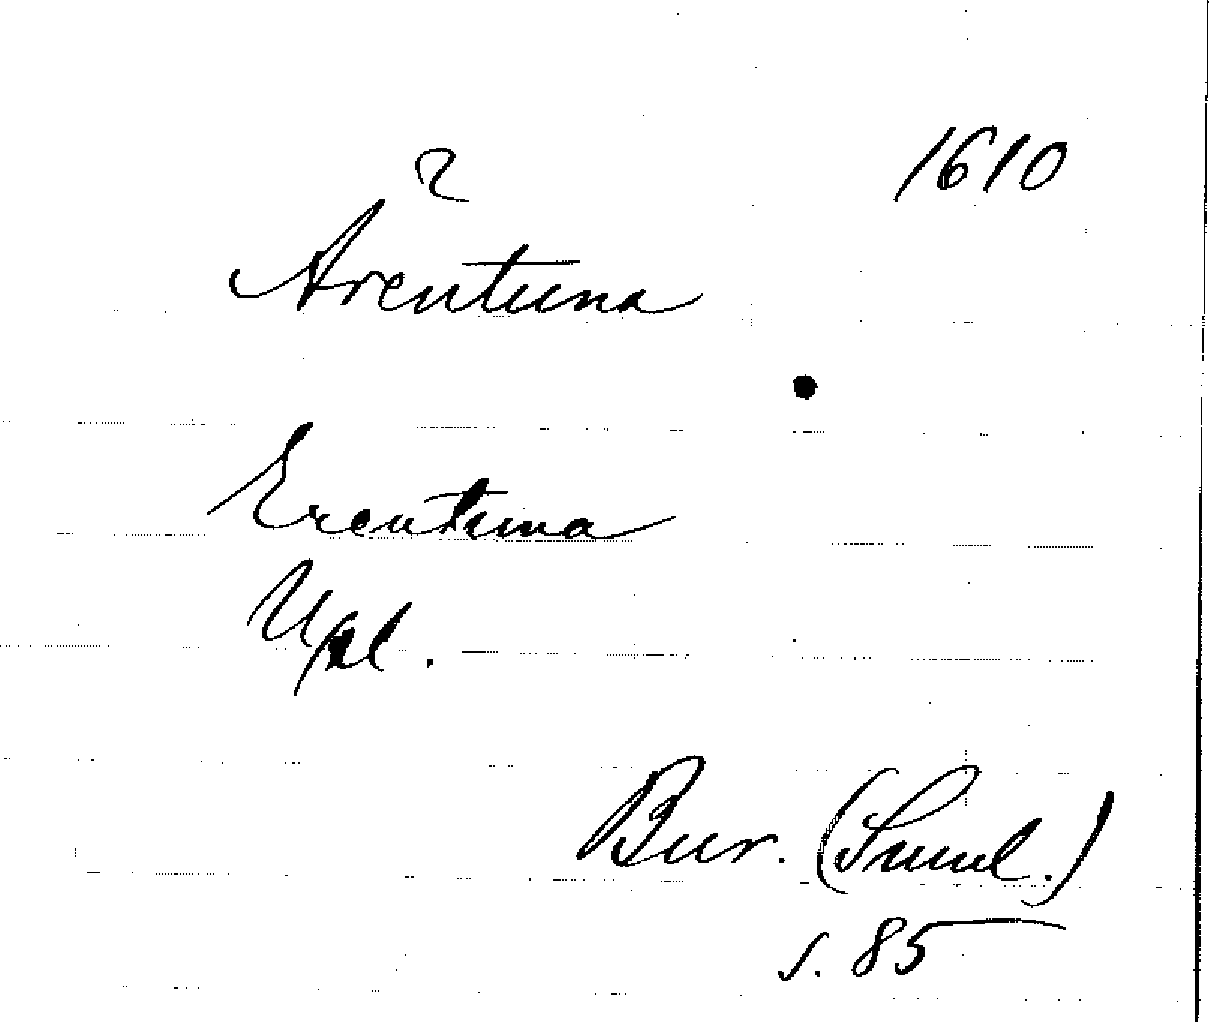 1610
Ärentuna
Erentuna
Upl.
Bur. (Suml.)
s. 85